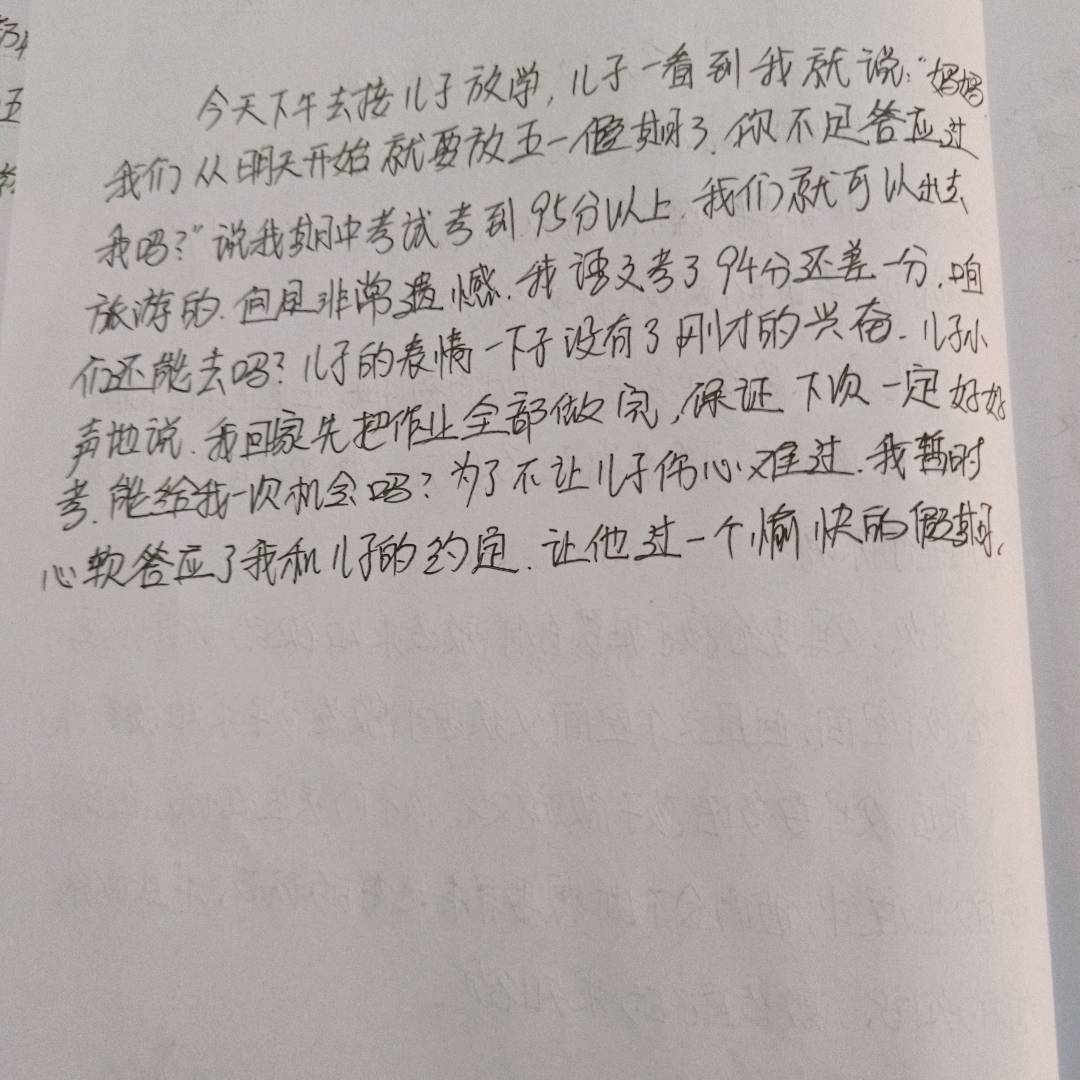 今天下午去接儿子放学,儿子一看到我就说:"妈妈
我们从明天开始就要放五一假期了.你不是答应过
我吗?"说我期中考试考到95分以上.我们就可以出去
旅游的.但是非常遗憾.我语文考了94分还差一分.咱
们还能去吗?儿子的表情一下子没有了刚才的兴奋.儿子小
声地说.我回家先把作业全部做完,保证下次一定好好
考.能给我一次机会吗?为了不让儿子伤心难过.我暂时
心软答应了我和儿子的约定.让他过一个愉快的假期.
五